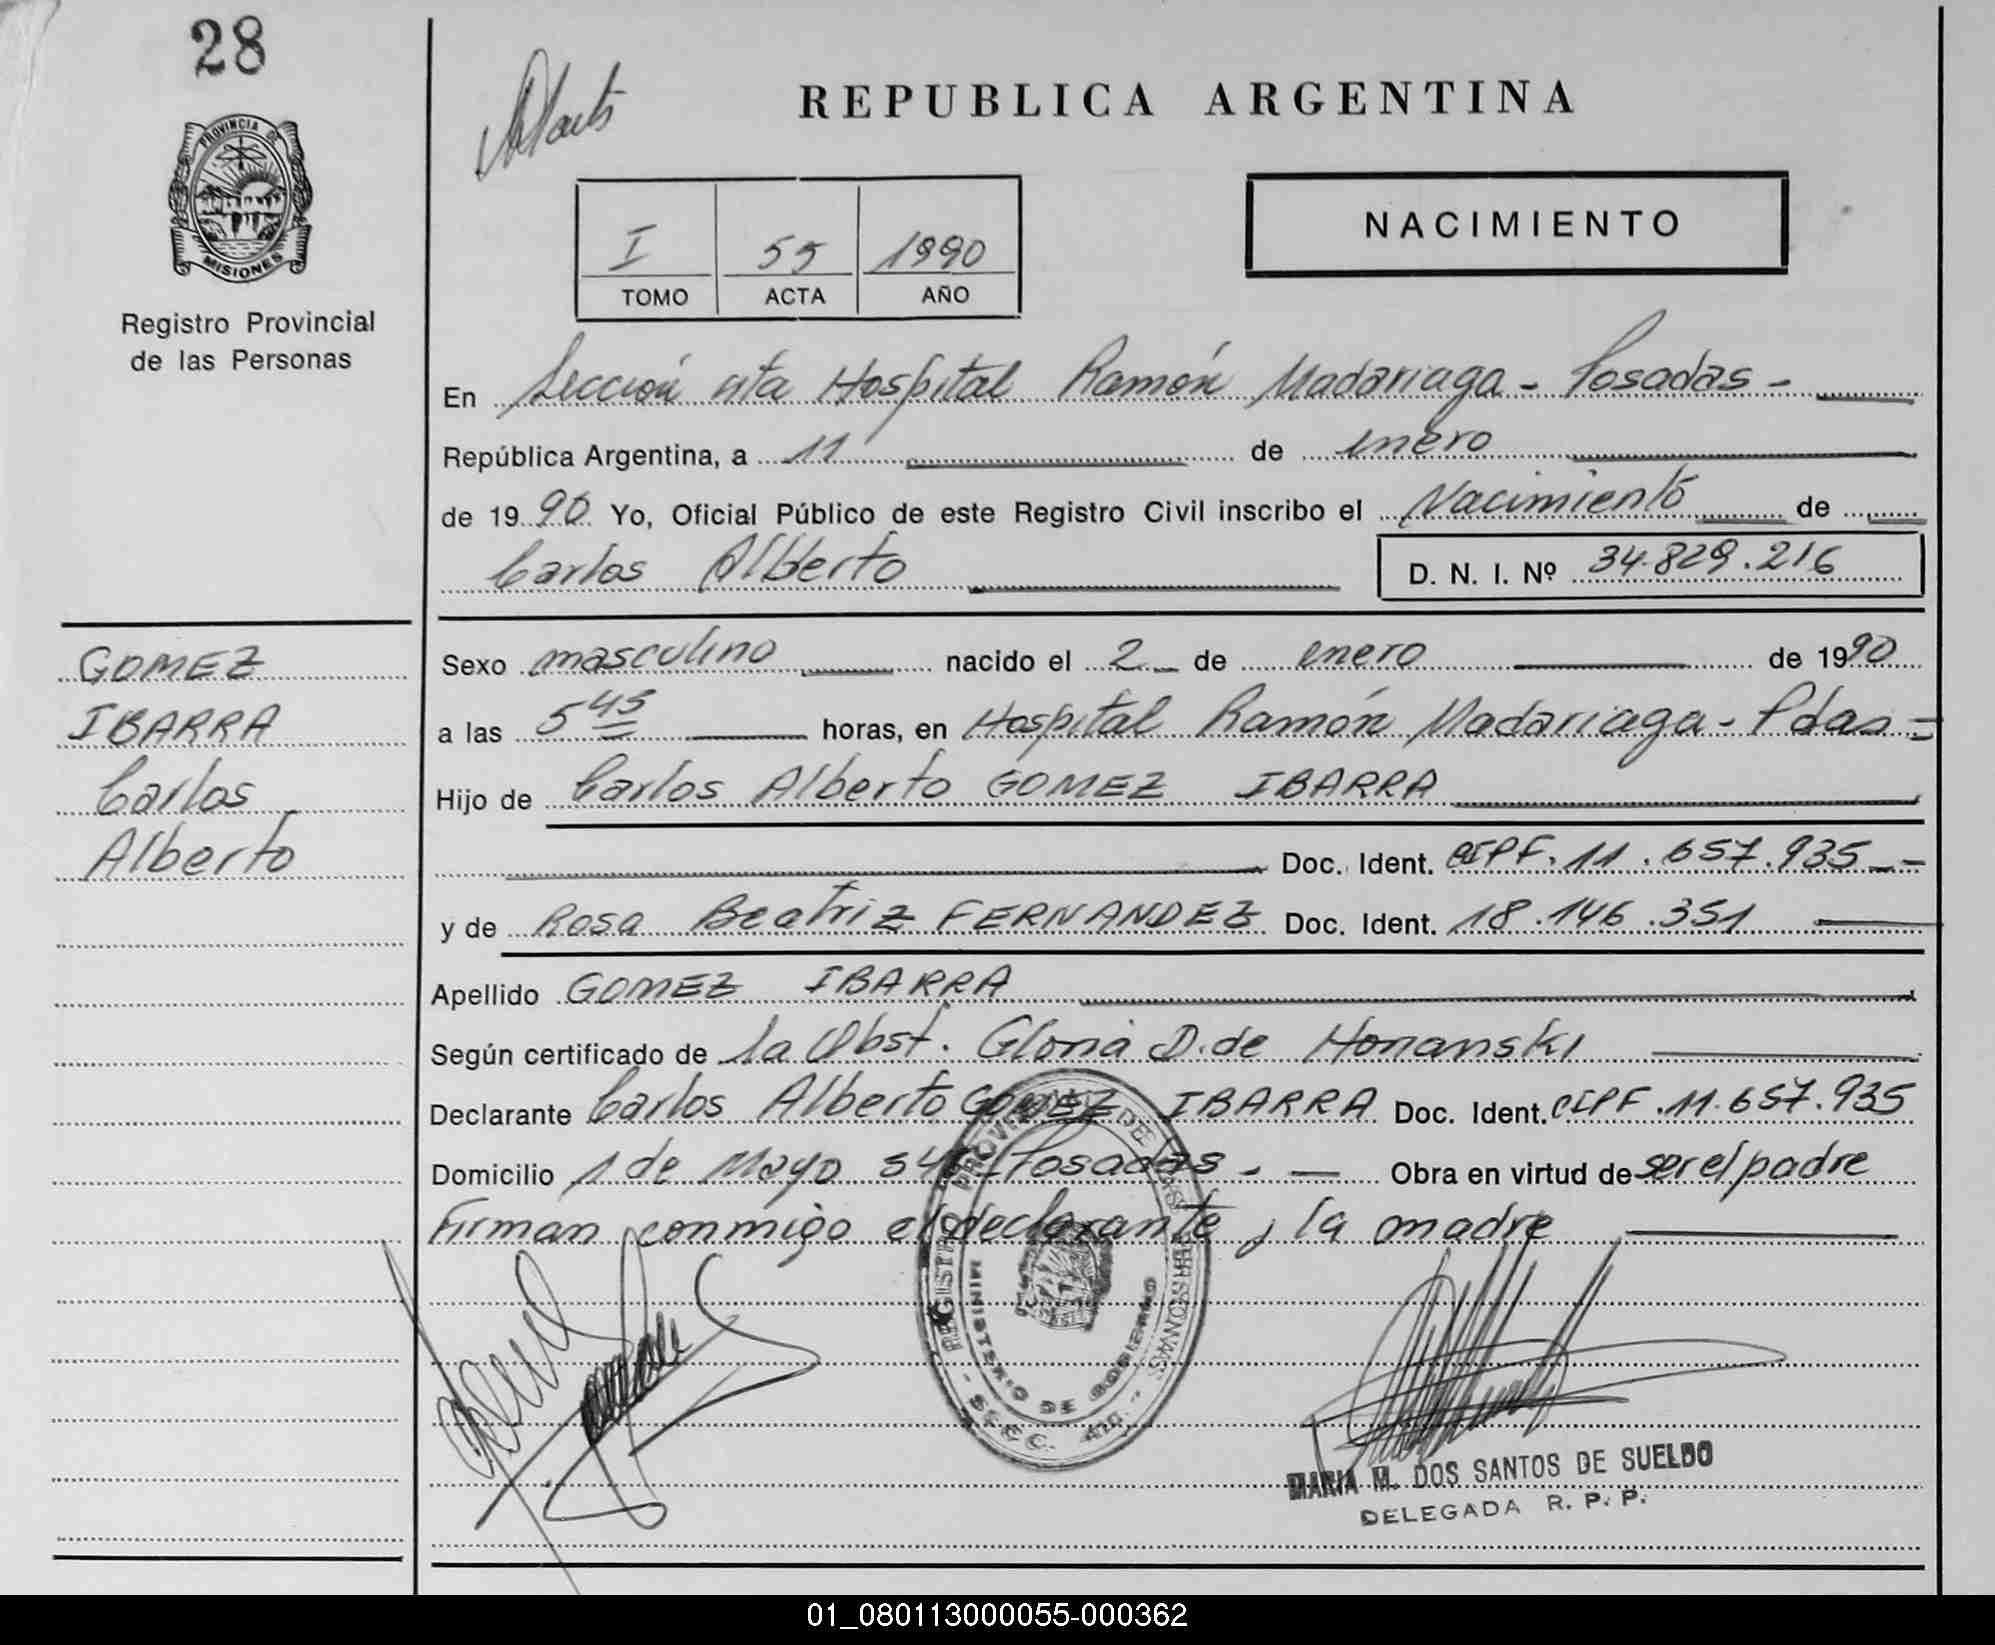 28
REPUBLICA ARGENTINA
PROVINCIA DE
MISIONES
Registro Provincial
de las Personas
NACIMIENTO
I 55 1990
TOMO ACTA AÑO
En Sección sita Hospital Ramón Madariaga - Posadas -
República Argentina, a 11 de enero
de 1990 Yo, Oficial Público de este Registro Civil inscribo el Nacimiento de
Carlos Alberto D. N. I. Nº 34.829.216
GOMEZ
IBARRA
Carlos
Alberto
Sexo masculino nacido el 2 de enero de 1990
a las 5 45 horas, en Hospital Ramón Madariaga - Pdas -
Hijo de Carlos Alberto GOMEZ IBARRA
Doc. Ident. CIPF. 11.657.935
y de Rosa Beatriz FERNANDEZ Doc. Ident. 18.146.351
Apellido GOMEZ IBARRA
Según certificado de la Obst. Gloria D. de Honanski
Declarante Carlos Alberto GOMEZ IBARRA Doc. Ident. CIPF. 11.657.935
Domicilio 1 de Mayo Posadas - Obra en virtud de ser el padre
Firman conmigo el declarante y la madre
REGISTRO PROVINCIAL DE LAS PERSONAS
MINISTERIO DE GOBIERNO
MARIA M. DOS SANTOS DE SUELDO
DELEGADA R. P. P.
01_080113000055-000362